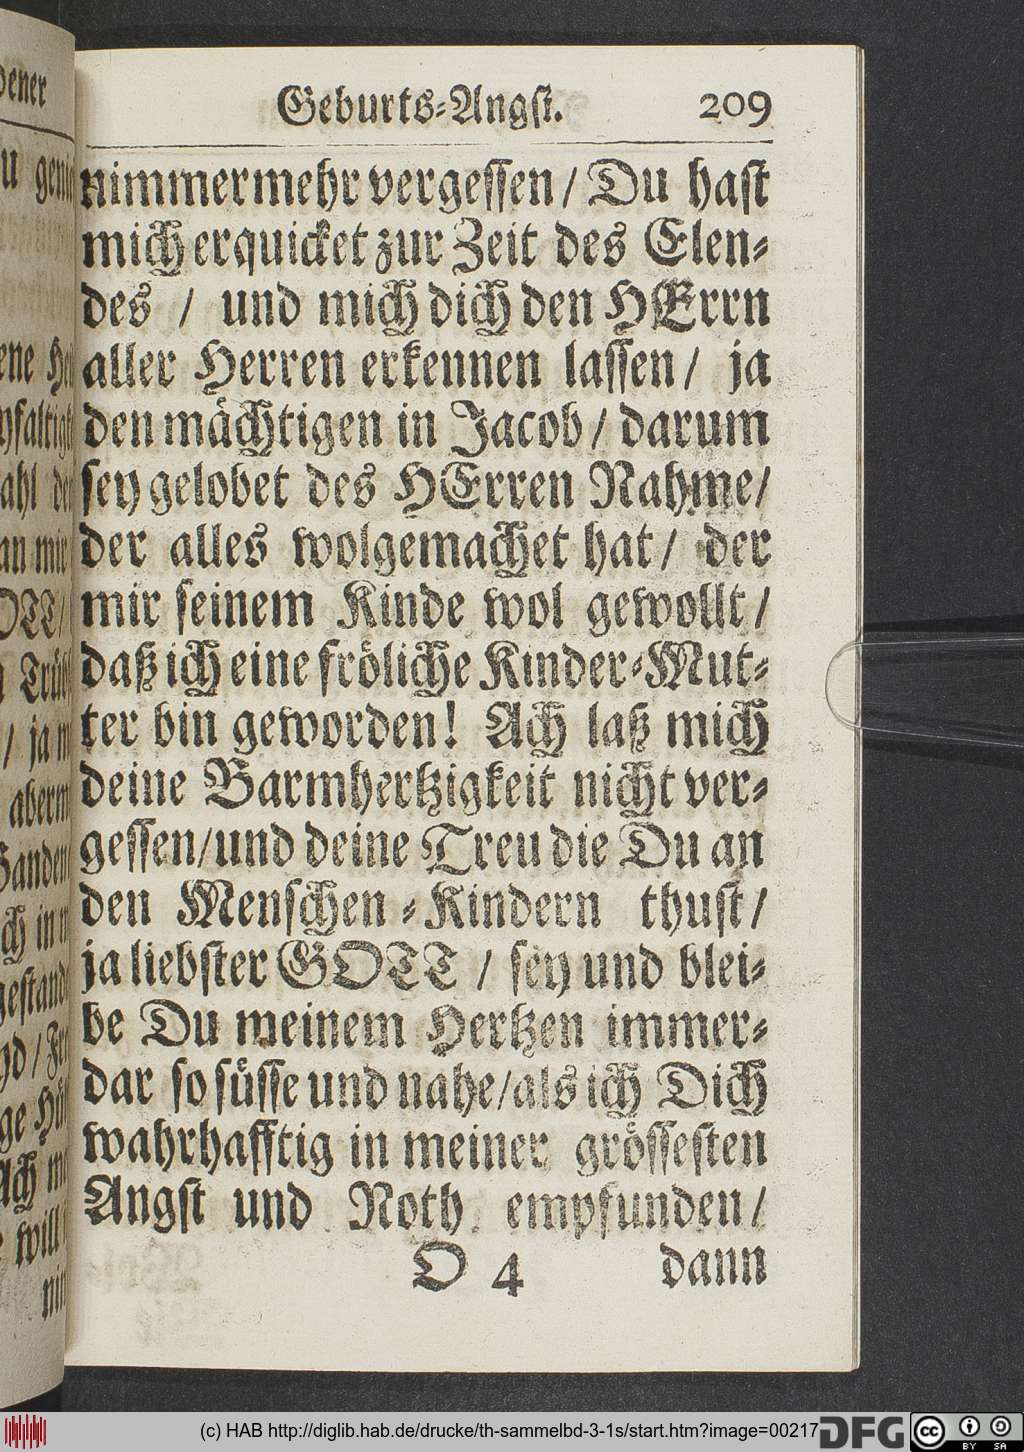 Geburts-Angst. 209
nimmermehr vergessen / Du hast
mich erquicket zur Zeit des Elen-
des / und mich dich den HErrn
aller Herren erkennen lassen / ja
den mächtigen in Jacob / darum
sey gelobet des HErren Nahme /
der alles wolgemachet hat / der
mir seinem Kinde wol gewollt /
daß ich eine fröliche Kinder-Mut-
ter bin geworden! Ach laß mich
deine Barmhertzigkeit nicht ver-
gessen / und deine Treu die Du an
den Menschen-Kindern thust /
ja liebster GOTT / sey und blei-
be Du meinem Hertzen immer-
dar so süsse und nahe / als ich Dich
wahrhafftig in meiner grössesten
Angst und Noth empfunden /
O 4 dann
(c) HAB http://diglib.hab.de/drucke/th-sammelbd-3-1s/start.htm?image=00217
DFG
cc BY SA